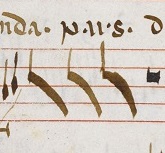 nda. p.a.r.s. d